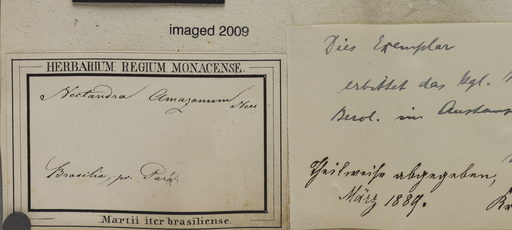 imaged 2009
HERBARIUM REGIUM MONACENSE.
Nectandra Amazonum Nees
Brasilia, pr. Pará.
Martii iter brasiliense.
Dies Exemplar
erbittet das kgl.
Berol. im Austaus
Theilweise abgegeben,
März 1889.